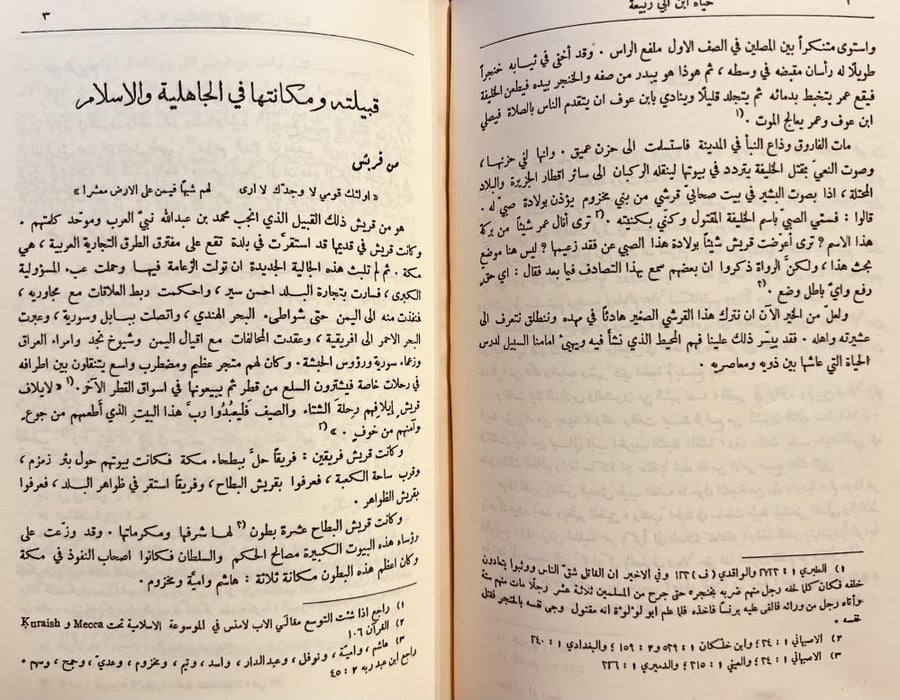 ٢
حياة ابن ابي ربيعة
واستوى متنكراً بين المصلين في الصف الاول ملفع الراس . وقد أخفى في ثيابه خنجراً
طويلًا له رأسان مقبضه في وسطه ، ثم هوذا هو يبدر من صفه والخنجر بيده فيطعن الخليفة
فيقع عمر يتخبط بدمائه ثم يتجلد قليلًا وينادي بابن عوف ان يتقدم الناس بالصلاة فيصلي
ابن عوف وعمر يعالج الموت . ١)
مات الفاروق وذاع النبأ في المدينة فاستسلمت الى حزن عميق . وانها لفي حزنها ،
وصوت النعيّ بمقتل الخليفة يتردد في بيوتها لينقله الركبان الى سائر اقطار الجزيرة والبلاد
المحتلة ، اذا بصوت البشير في بيت صحابيّ قرشي من بني مخزوم يؤذن بولادة صبيّ له .
قالوا : فسمّي الصبيّ باسم الخليفة المقتول وكني بكنيته . ٢) ترى أنال عمر شيئاً من بركة
هذا الاسم ? ترى أعوّضت قريش شيئاً بولادة هذا الصبي عن فقد زعيمها ? ليس هنا موضع
بحث هذا ، ولكنَّ الرواة ذكروا ان بعضهم سمع بهذا التصادف فيما بعد فقال : اي حق
رفع وايّ باطل وضع . ٣)
ولعل من الخير الآن ان نترك هذا القرشي الصغير هادئاً في مهده وننطلق نتعرف الى
عشيرته واهله . فقد ييسّر ذلك علينا فهم المحيط الذي نشأ فيه ويهيئ امامنا السبيل لدرس
الحياة التي عاشها بين ذويه ومعاصريه .
١) الطبري ١ : ٢٧٢٢ والواقدي (ف) ١٣٦ وفي الاخير ان القاتل شقّ الناس ووثبوا يتعادون
خلفه فكان كلما لحقه رجل منهم ضربه بخنجره حتى جرح من المسلمين ثلاثة عشر رجلًا مات منهم ستة
وأتاه رجل من ورائه فألقى عليه برنساً فاخذه فلما علم ابو لؤلؤة انه مقتول وجى نفسه بالخنجر فقتل
نفسه .
٢) الاصبهاني ١ : ٣٤ وابن خلكان ١ : ٥٣٩ و ٣ : ١٥٩ والبغدادي ١ : ٢٤٠
٣) الاصبهاني ١ : ٣٤ والعيني ١ : ٣١٥ والدميري ١ : ٢٢٦
٣
قبيلته ومكانتها في الجاهلية والاسلام
من قريش
« اولئك قومي لا وجدّك لا ارى لهم شبهاً فيمن على الارض معشرا »
هو من قريش ذلك القبيل الذي انجب محمد بن عبدالله نبيّ العرب وموحّد كلمتهم .
وكانت قريش في قديمها قد استقرَّت في بلدة تقع على مفترق الطرق التجارية العربية ، هي
مكة . ثم لم تلبث هذه الجالية الجديدة ان تولت الزعامة فيها وحملت عبء المسؤولية
الكبرى ، فسارت بتجارة البلد احسن سير ، واحكمت ربط العلاقات مع مجاوريه ،
فنفذت منه الى اليمن حتى شواطىء البحر الهندي ، واتصلت ببابل وسورية ، وعبرت
البحر الاحمر الى افريقية ، وعقدت المحالفات مع اقيال اليمن وشيوخ نجد وامراء العراق
وزعماء سورية ورؤوس الحبشة . وكان لهم متجر عظيم ومضطرب واسع يتنقلون بين اطرافه
في رحلات خاصة فيشترون السلع من قطر ثم يبيعونها في اسواق القطر الآخر . ١) « لايلاف
قريش إيلافهم رحلة الشتاء والصيف فليعبدُوا ربَّ هذا البيت الذي أطعمهم من جوع
وآمنهم من خوف . » ٢)
وكانت قريش فريقين : فريقاً حلَّ ببطحاء مكة فكانت بيوتهم حول بئر زمزم ،
وقرب ساحة الكعبة ، فعرفوا بقريش البطاح ، وفريقاً استقر في ظواهر البلد ، فعرفوا
بقريش الظواهر .
وكانت قريش البطاح عشرة بطون ٣) لها شرفها ومكرماتها . وقد وزعت على
رؤساء هذه البيوت الكبيرة مصالح الحكم والسلطان فكانوا اصحاب النفوذ في مكة
وكان اعظم هذه البطون مكانة ثلاثة : هاشم واميَّة ومخزوم .
١) راجع اذا شئت التوسع مقالَي الاب لامنس في الموسوعة الاسلامية تحت Mecca و Kuraish
٢) القرآن ١٠٦
٣) هاشم ، واميَّة ، ونوفل ، وعبد الدار ، واسد ، وتيم ، ومخزوم ، وعديّ ، وجمح ، وسهم .
راجع ابن عبد ربه ٢ : ٤٥